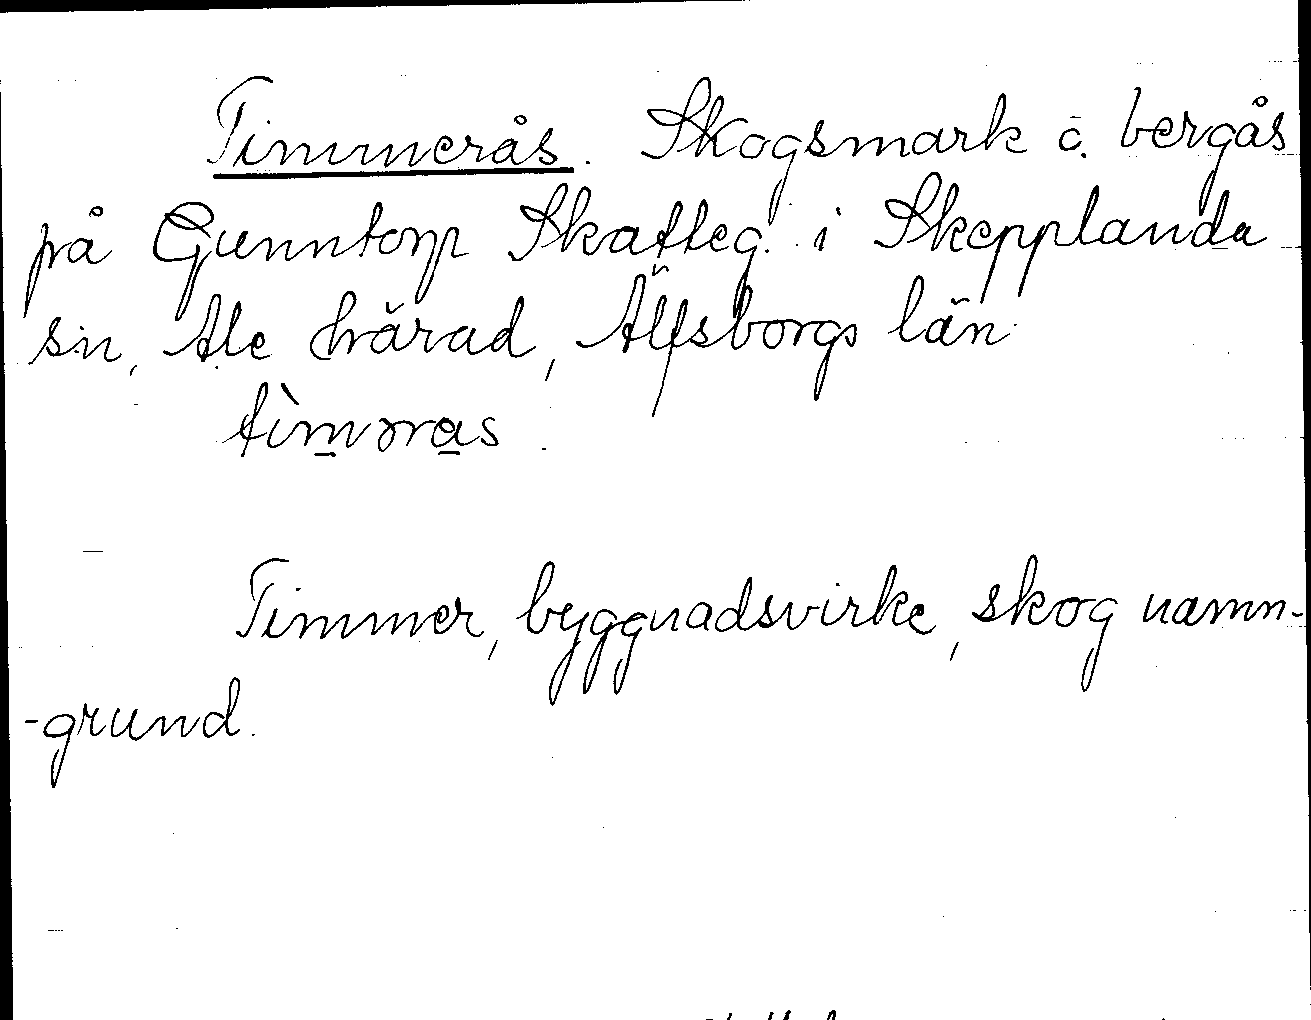 Timmerås. Skogsmark o. bergås
på Gunntorp Skatteg. i Skepplanda
sn, Ale härad, Älfsborgs län
tìməras.
Timmer, byggnadsvirke, skog namn-
-grund.